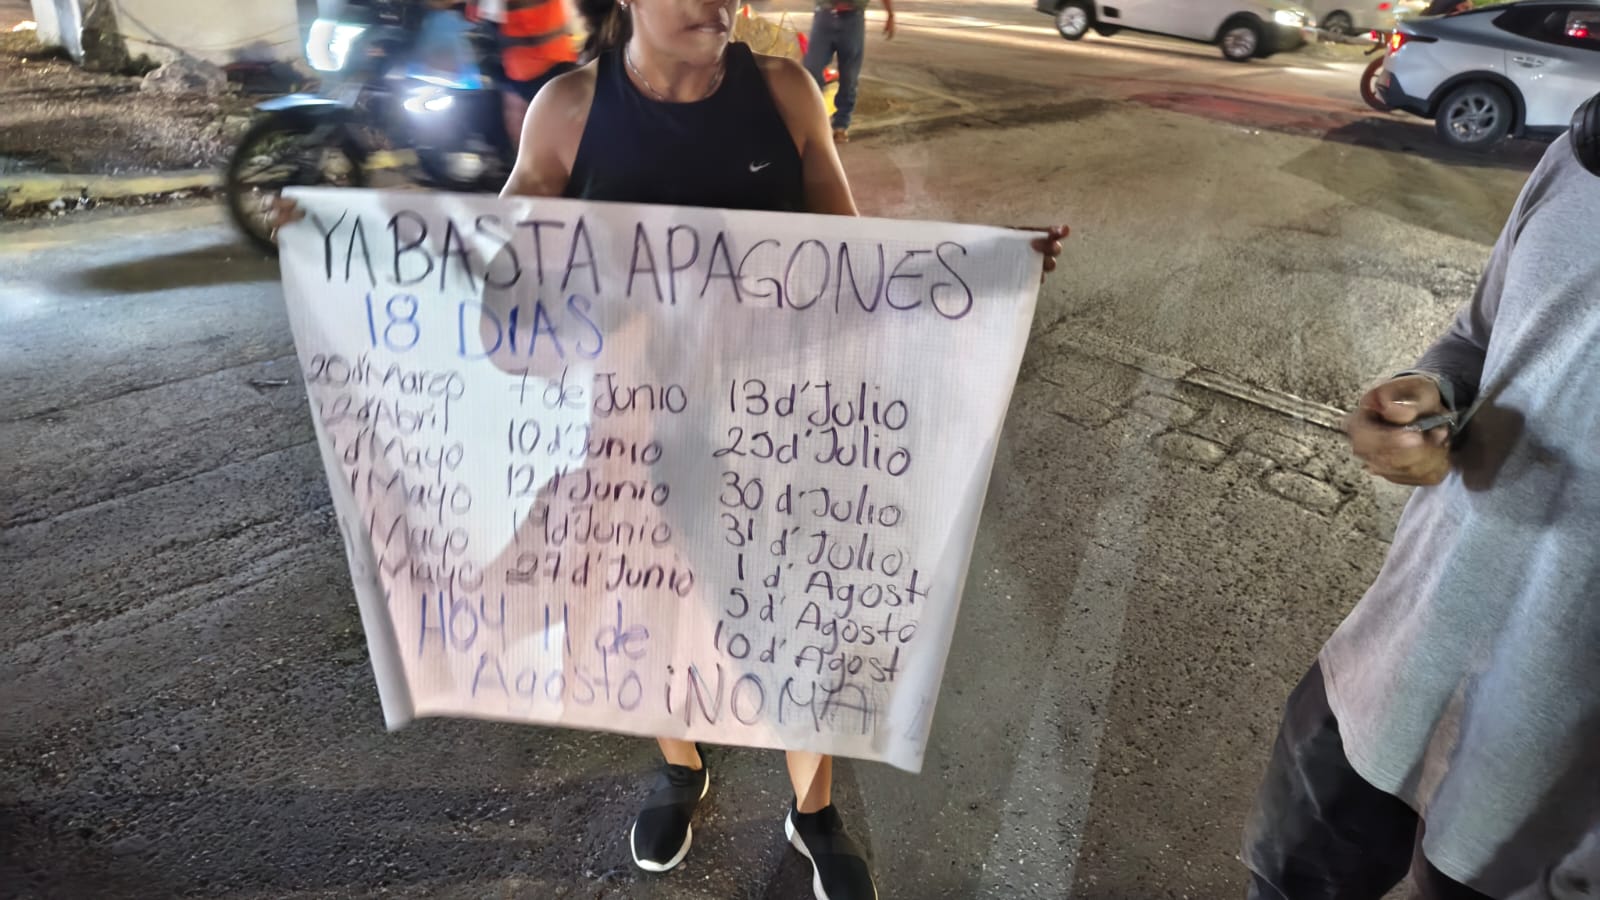 YA BASTA APAGONES
18 DIAS
20 d' Marzo
d' Abril
d' Mayo
Mayo
Mayo
Mayo
7 de Junio
10 d' Junio
12 d' Junio
19 d' Junio
27 d' Junio
13 d' Julio
d' Julio
30 d' Julio
31 d' Julio
1 d' Agost
5 d' Agosto
10 d' Agost
Y HOY 11 de
Agosto ¡NO MA